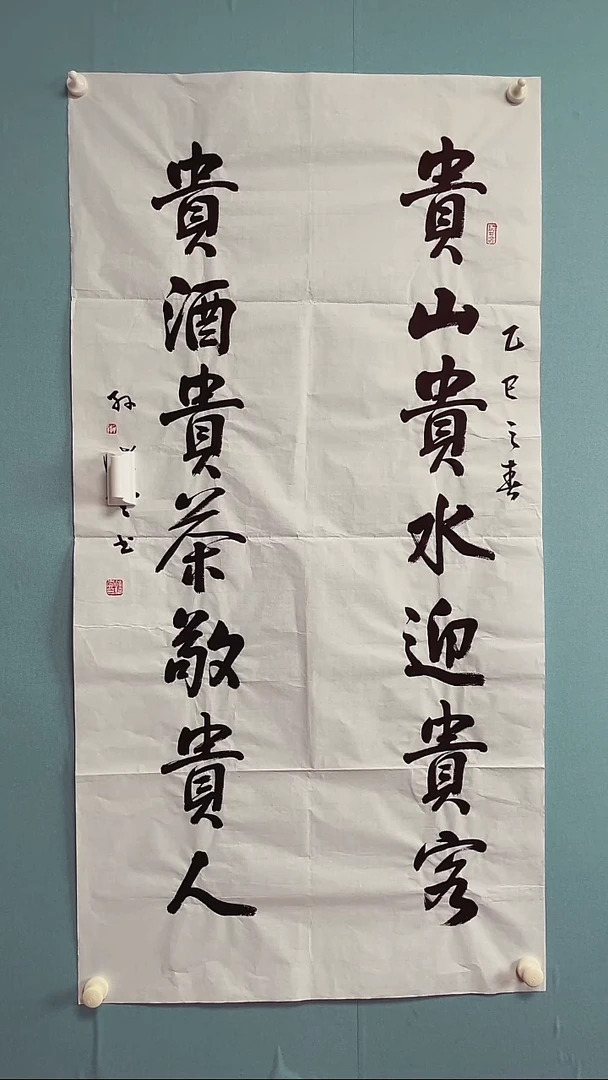 貴山貴水迎貴客
乙巳之春
貴酒貴茶敬貴人
孫
书